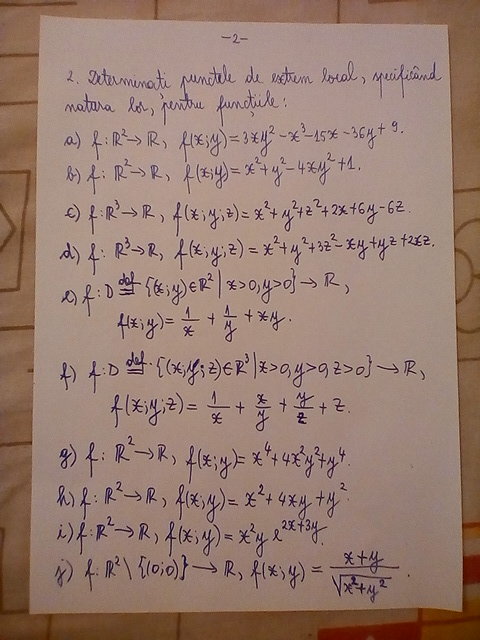 -2-
2. Determinați punctele de extrem local, specificând
natura lor, pentru funcțiile:
a) f: ℝ² → ℝ, f(x;y) = 3xy² - x³ - 15x - 36y + 9.
b) f: ℝ² → ℝ, f(x;y) = x² + y² - 4xy² + 1.
c) f: ℝ³ → ℝ, f(x;y;z) = x² + y² + z² + 2x + 6y - 6z.
d) f: ℝ³ → ℝ, f(x;y;z) = x² + y² + 3z² - xy + yz + 2xz.
e) f: D def= {(x;y) ∈ ℝ² | x>0, y>0} → ℝ,
f(x;y) = 1/x + 1/y + xy.
f) f: D def= {(x;y;z) ∈ ℝ³ | x>0, y>0, z>0} → ℝ,
f(x;y;z) = 1/x + x/y + y/z + z.
g) f: ℝ² → ℝ, f(x;y) = x⁴ + 4x²y² + y⁴.
h) f: ℝ² → ℝ, f(x;y) = x² + 4xy + y².
i) f: ℝ² → ℝ, f(x;y) = x²y e^(2x+3y).
j) f: ℝ² \ {(0;0)} → ℝ, f(x;y) = (x+y)/√(x²+y²).